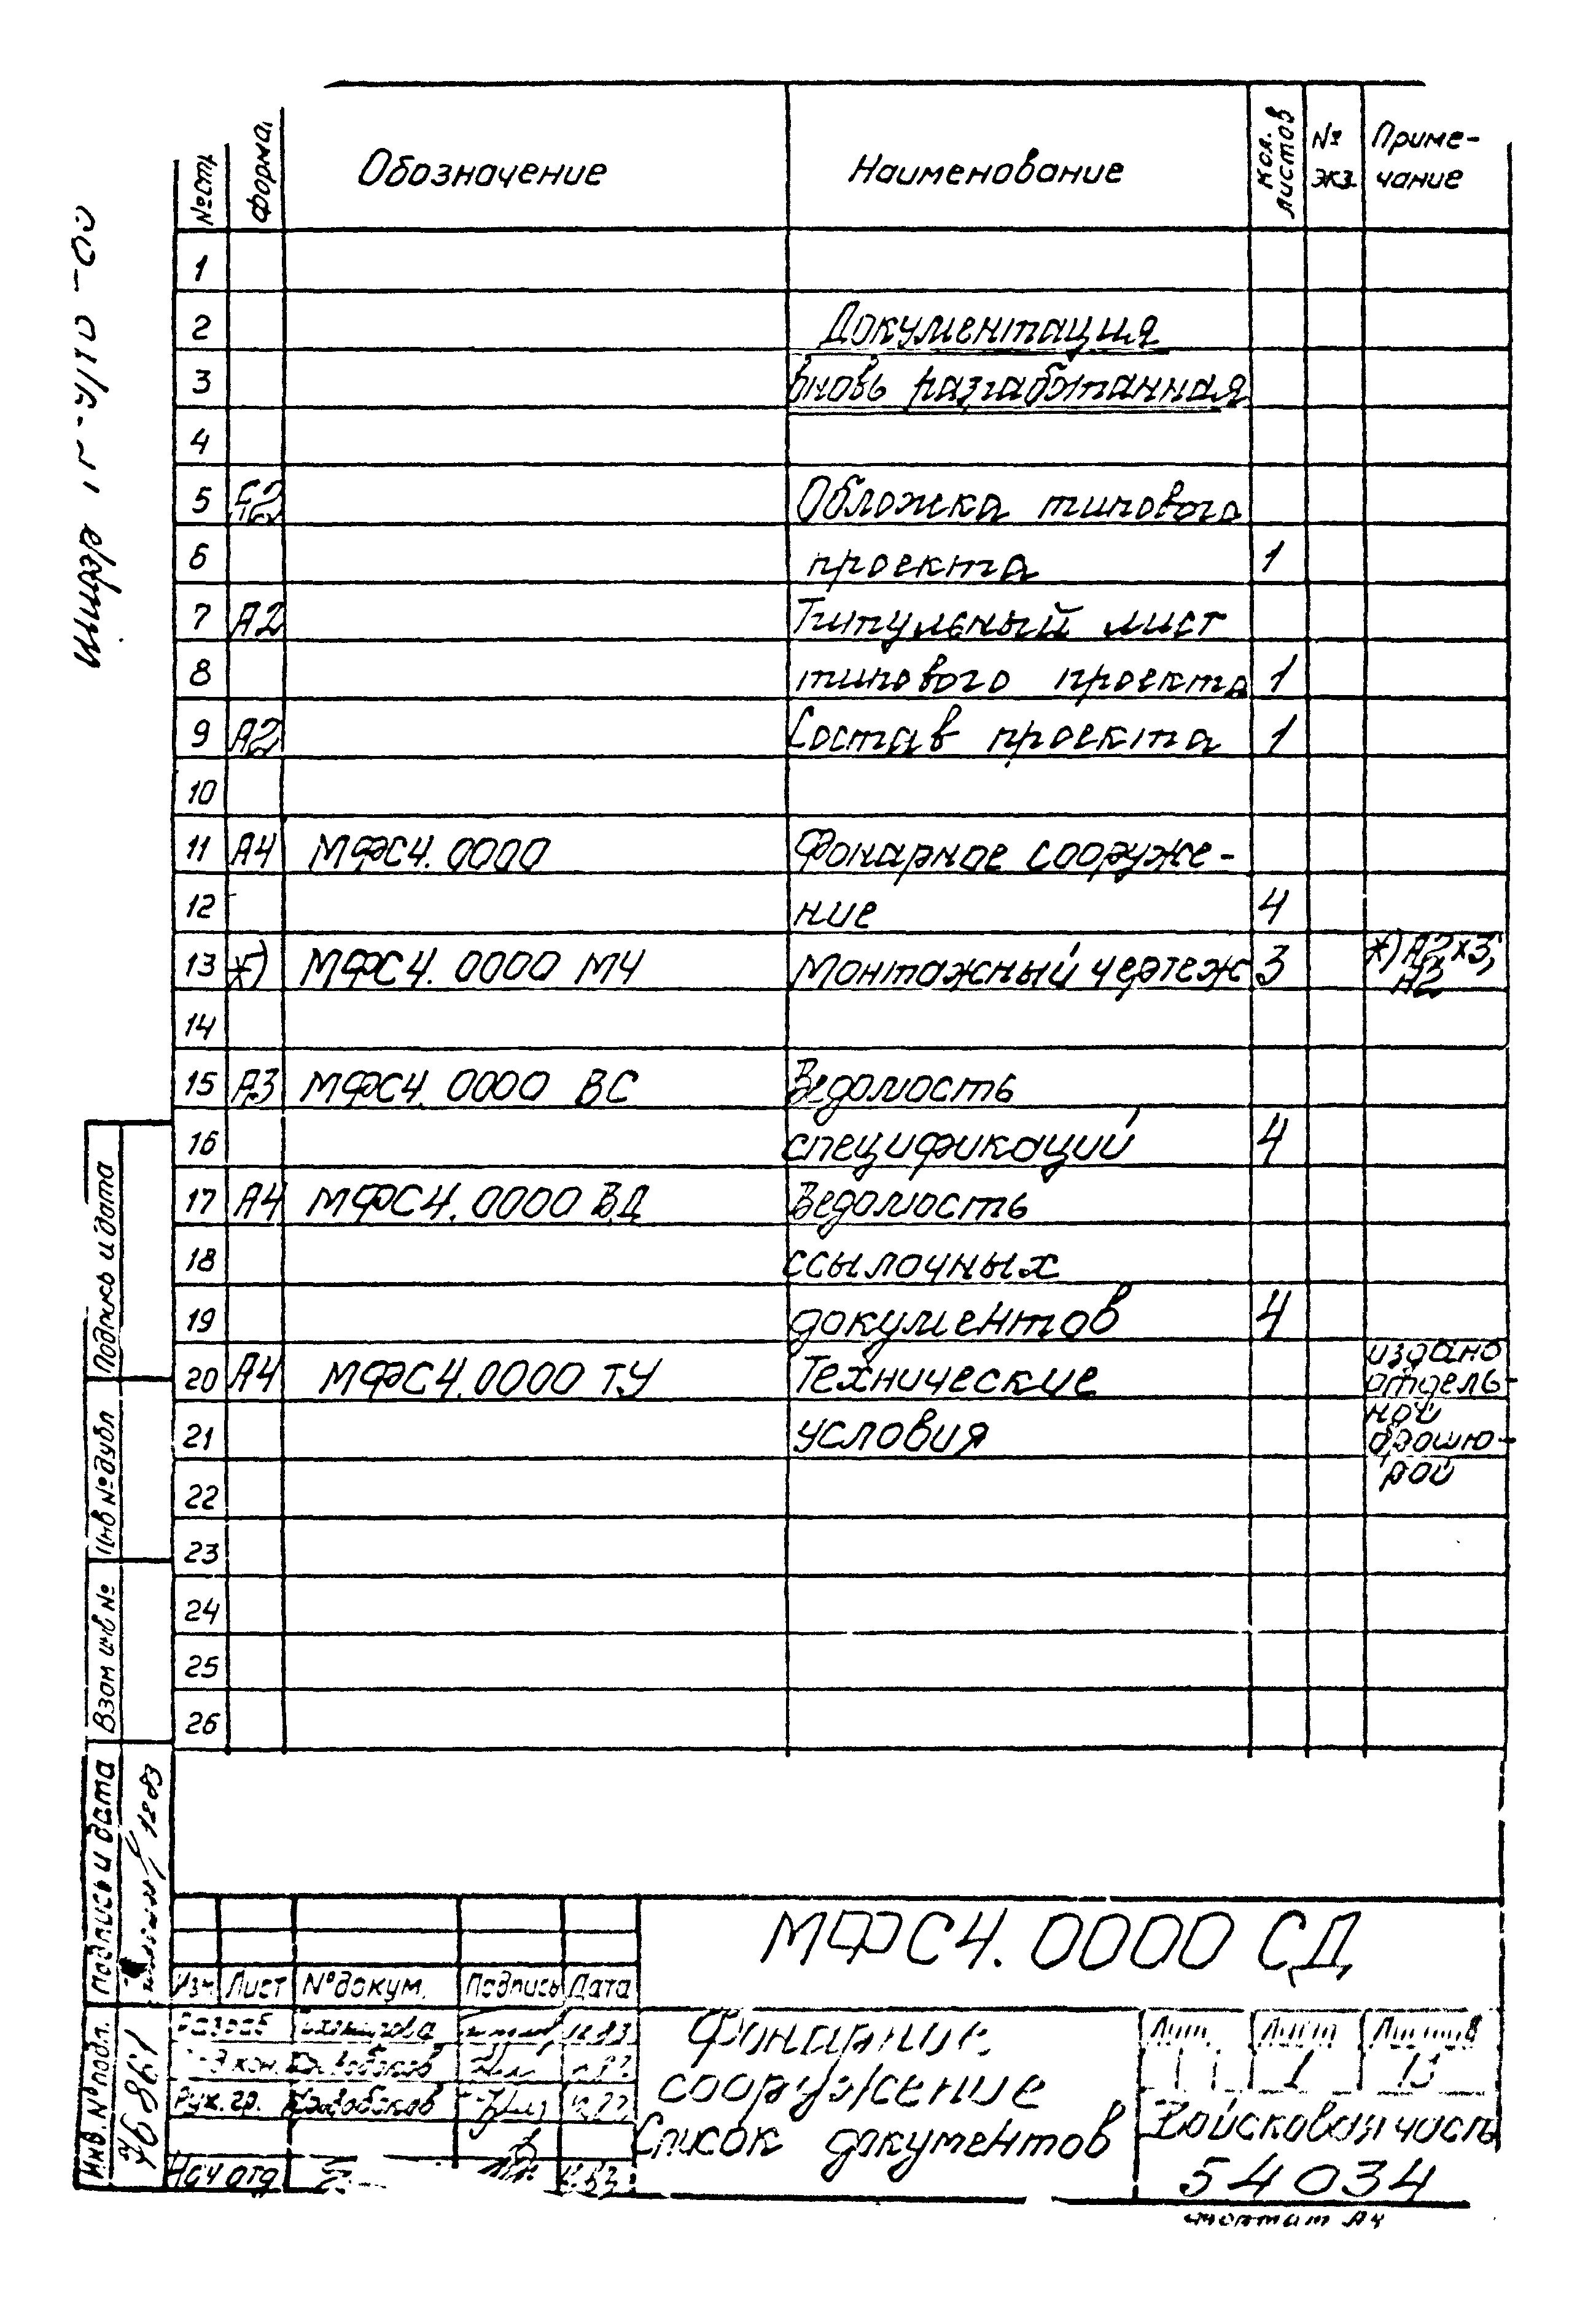 №стр. Форма. Обозначение Наименование Кол. листов № экз. Приме-чание
1
2 Документация
3 вновь разработанная
4
5 Обложка типового
6 проекта 1
7 А2 Титульный лист
8 типового проекта 1
9 А2 Состав проекта 1
10
11 А4 МФС4.0000 Фонарное сооруже-
12 ние 4
13 *) МФС4.0000 МЧ Монтажный чертеж 3 *) А2х3,
А2
14
15 А3 МФС4.0000 ВС Ведомость
16 спецификаций 4
17 А4 МФС4.0000 ВД Ведомость
18 ссылочных
19 документов 4
20 А4 МФС4.0000 ТУ Технические издано
отдель-
21 условия ной
брошю-
22 рой
23
24
25
26
Подпись и дата
Инв № дубл
Взам инв №
Подпись и дата 1283
Инв. № подл.
МФС4.0000 СД
Изм. Лист № докум. Подпись Дата
Разраб
Рук. гр.
Нач отд
Фонарное
сооружение
Список документов
Лит. Лист Листов
1 13
Войсковая часть
54034
Формат А4